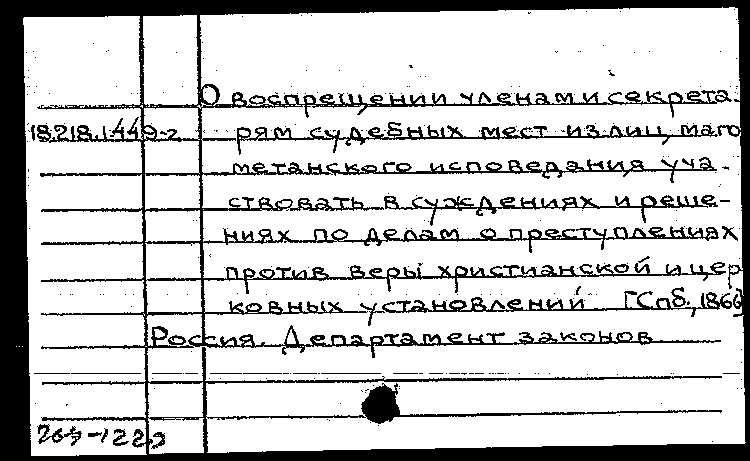 О воспрещении членам и секрета-
18.218.1.449-2 рям судебных мест из лиц, маго
метанского исповедания, уча-
ствовать в суждениях и реше-
ниях по делам о преступлениях
против веры христианской и цер
ковных установлений [Спб., 1866]
Россия. Департамент законов